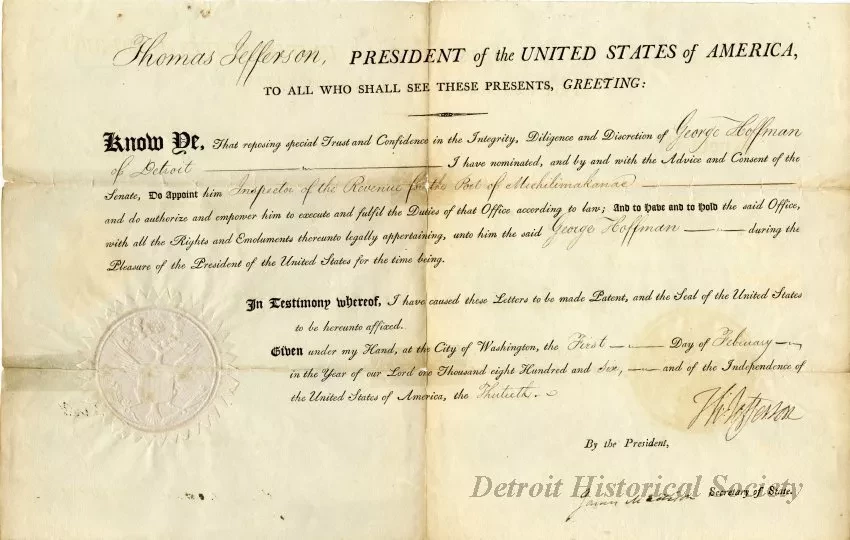 Thomas Jefferson, PRESIDENT of the UNITED STATES of AMERICA,
TO ALL WHO SHALL SEE THESE PRESENTS, GREETING:
Know Ye, That reposing special Trust and Confidence in the Integrity, Diligence and Discretion of George Hoffman
of Detroit I have nominated, and by and with the Advice and Consent of the
Senate, Do Appoint him Inspector of the Revenue for the Port of Michilimakanac
and do authorize and empower him to execute and fulfil the Duties of that Office according to law; And to Have and to Hold the said Office,
with all the Rights and Emoluments thereunto legally appertaining, unto him the said George Hoffman during the
Pleasure of the President of the United States for the time being.
In Testimony whereof, I have caused these Letters to be made Patent, and the Seal of the United States
to be hereunto affixed.
Given under my Hand, at the City of Washington, the First Day of February
in the Year of our Lord one Thousand eight Hundred and Six, and of the Independence of
the United States of America, the Thirtieth.
Th: Jefferson
By the President,
Detroit Historical Society
James Madison Secretary of State.